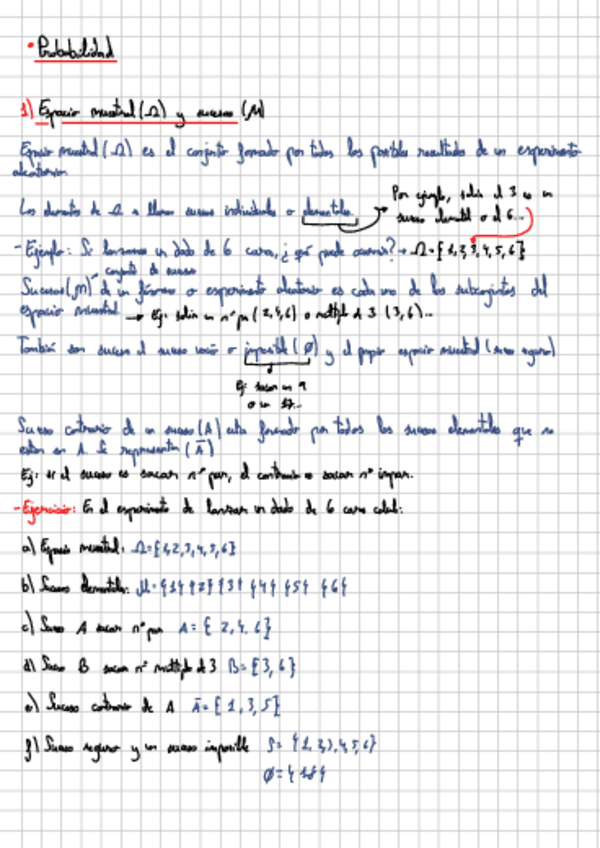 • Probabilidad
1) Espacio muestral (Ω) y sucesos (M)
Espacio muestral (Ω) es el conjunto formado por todos los posibles resultados de un experimento
aleatorio
Por ejemplo, salir el 3 es un
suceso elemental o el 6...
Los elementos de Ω se llaman sucesos individuales o elementales
- Ejemplo: Si lanzamos un dado de 6 caras, ¿qué puede ocurrir? → Ω = {1,2,3,4,5,6}
conjunto de sucesos
Sucesos (M) de un fenómeno o experimento aleatorio es cada uno de los subconjuntos del
espacio muestral → Ej: salir un nº par (2,4,6) o múltiplo de 3 (3,6)...
También son sucesos el suceso vacío o imposible (Ø) y el propio espacio muestral (suceso seguro)
Ej: sacar un 9
o un
Suceso contrario de un suceso (A) está formado por todos los sucesos elementales que no
están en A. Se representa (Ā)
Ej: si el suceso es sacar nº par, el contrario es sacar nº impar.
- Ejercicio: En el experimento de lanzar un dado de 6 caras calcula:
a) Espacio muestral: Ω = {1,2,3,4,5,6}
b) Sucesos elementales: M = {1} {2} {3} {4} {5} {6}
c) Suceso A sacar nº par A = {2,4,6}
d) Suceso B sacar nº múltiplo de 3 B = {3,6}
e) Suceso contrario de A Ā = {1,3,5}
f) Suceso seguro y un suceso imposible S = {1,2,3,4,5,6}
Ø = {18}